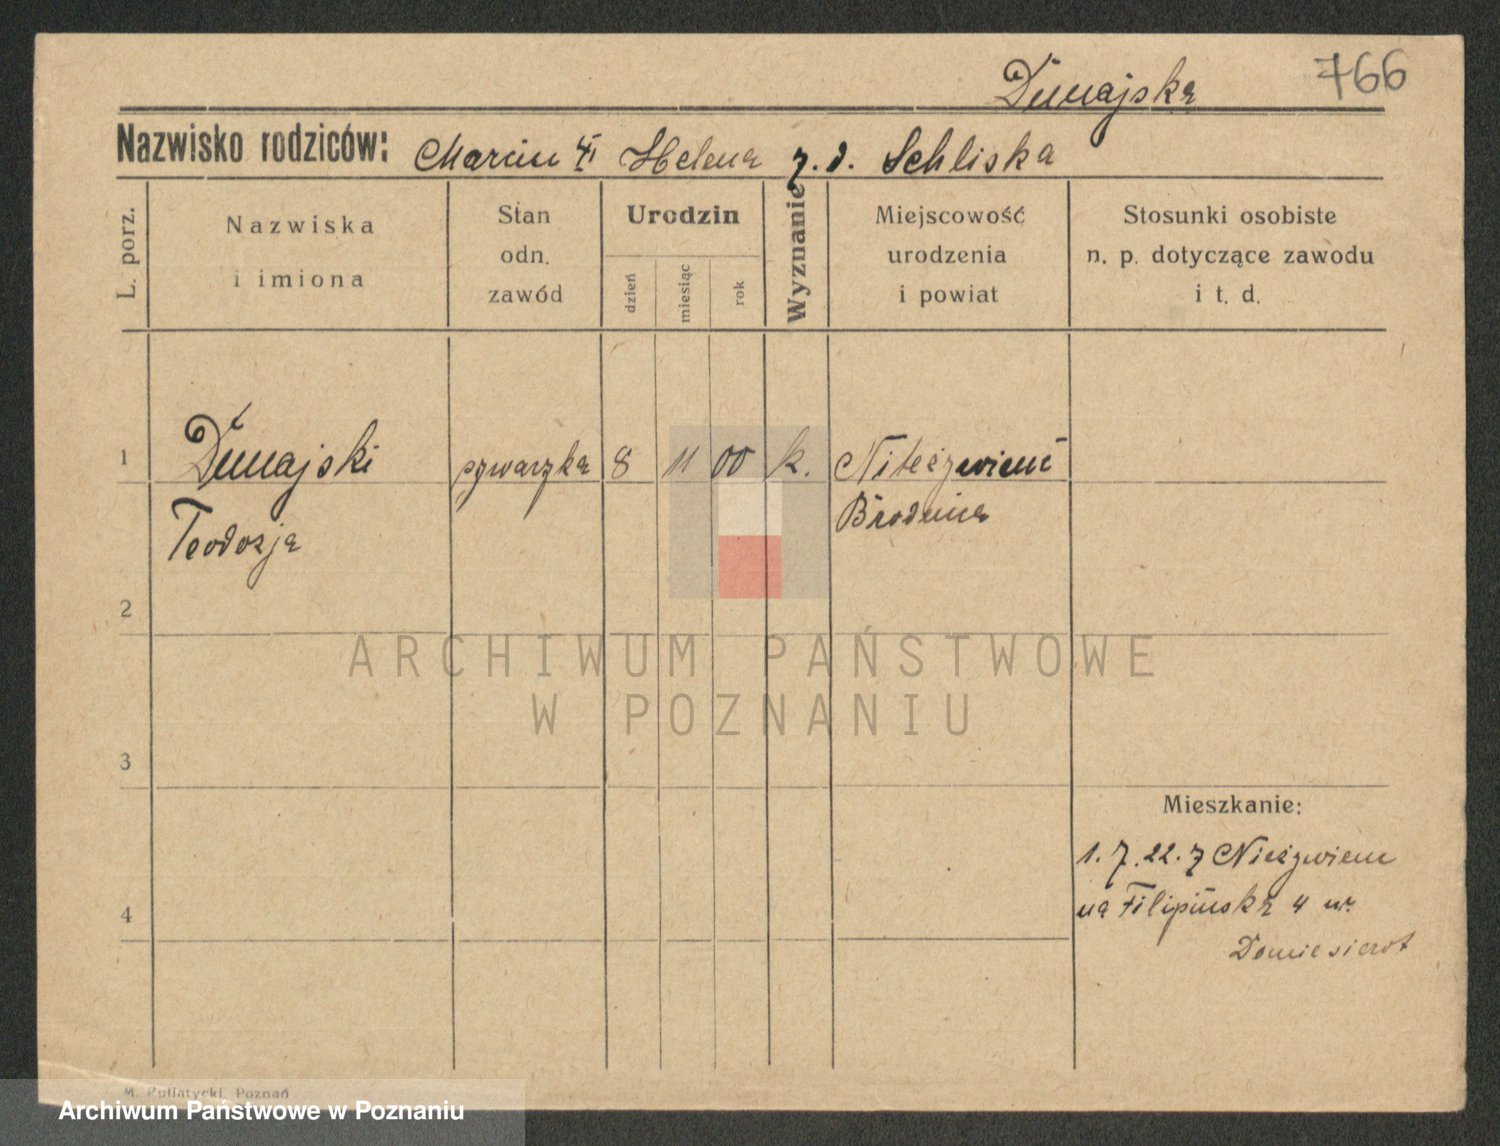 766
Dunajska
Nazwisko rodziców: Marcin Helena z. d. Schliska
L. porz.
Nazwiska
i imiona
Stan
odn.
zawód
Urodzin
dzień
miesiąc
rok
Wyznanie
Miejscowość
urodzenia
i powiat
Stosunki osobiste
n. p. dotyczące zawodu
i t. d.
1 Dunajski szwaczka 8 11 00 k.
Teodozja Brodnica
2
ARCHIWUM PAŃSTWOWE
W POZNANIU
3
Mieszkanie:
1. 7. 22. z Nieżywienc
na Filipińską 4 w.
4
Domiesierot
M. Putiatycki, Poznań
Archiwum Państwowe w Poznaniu